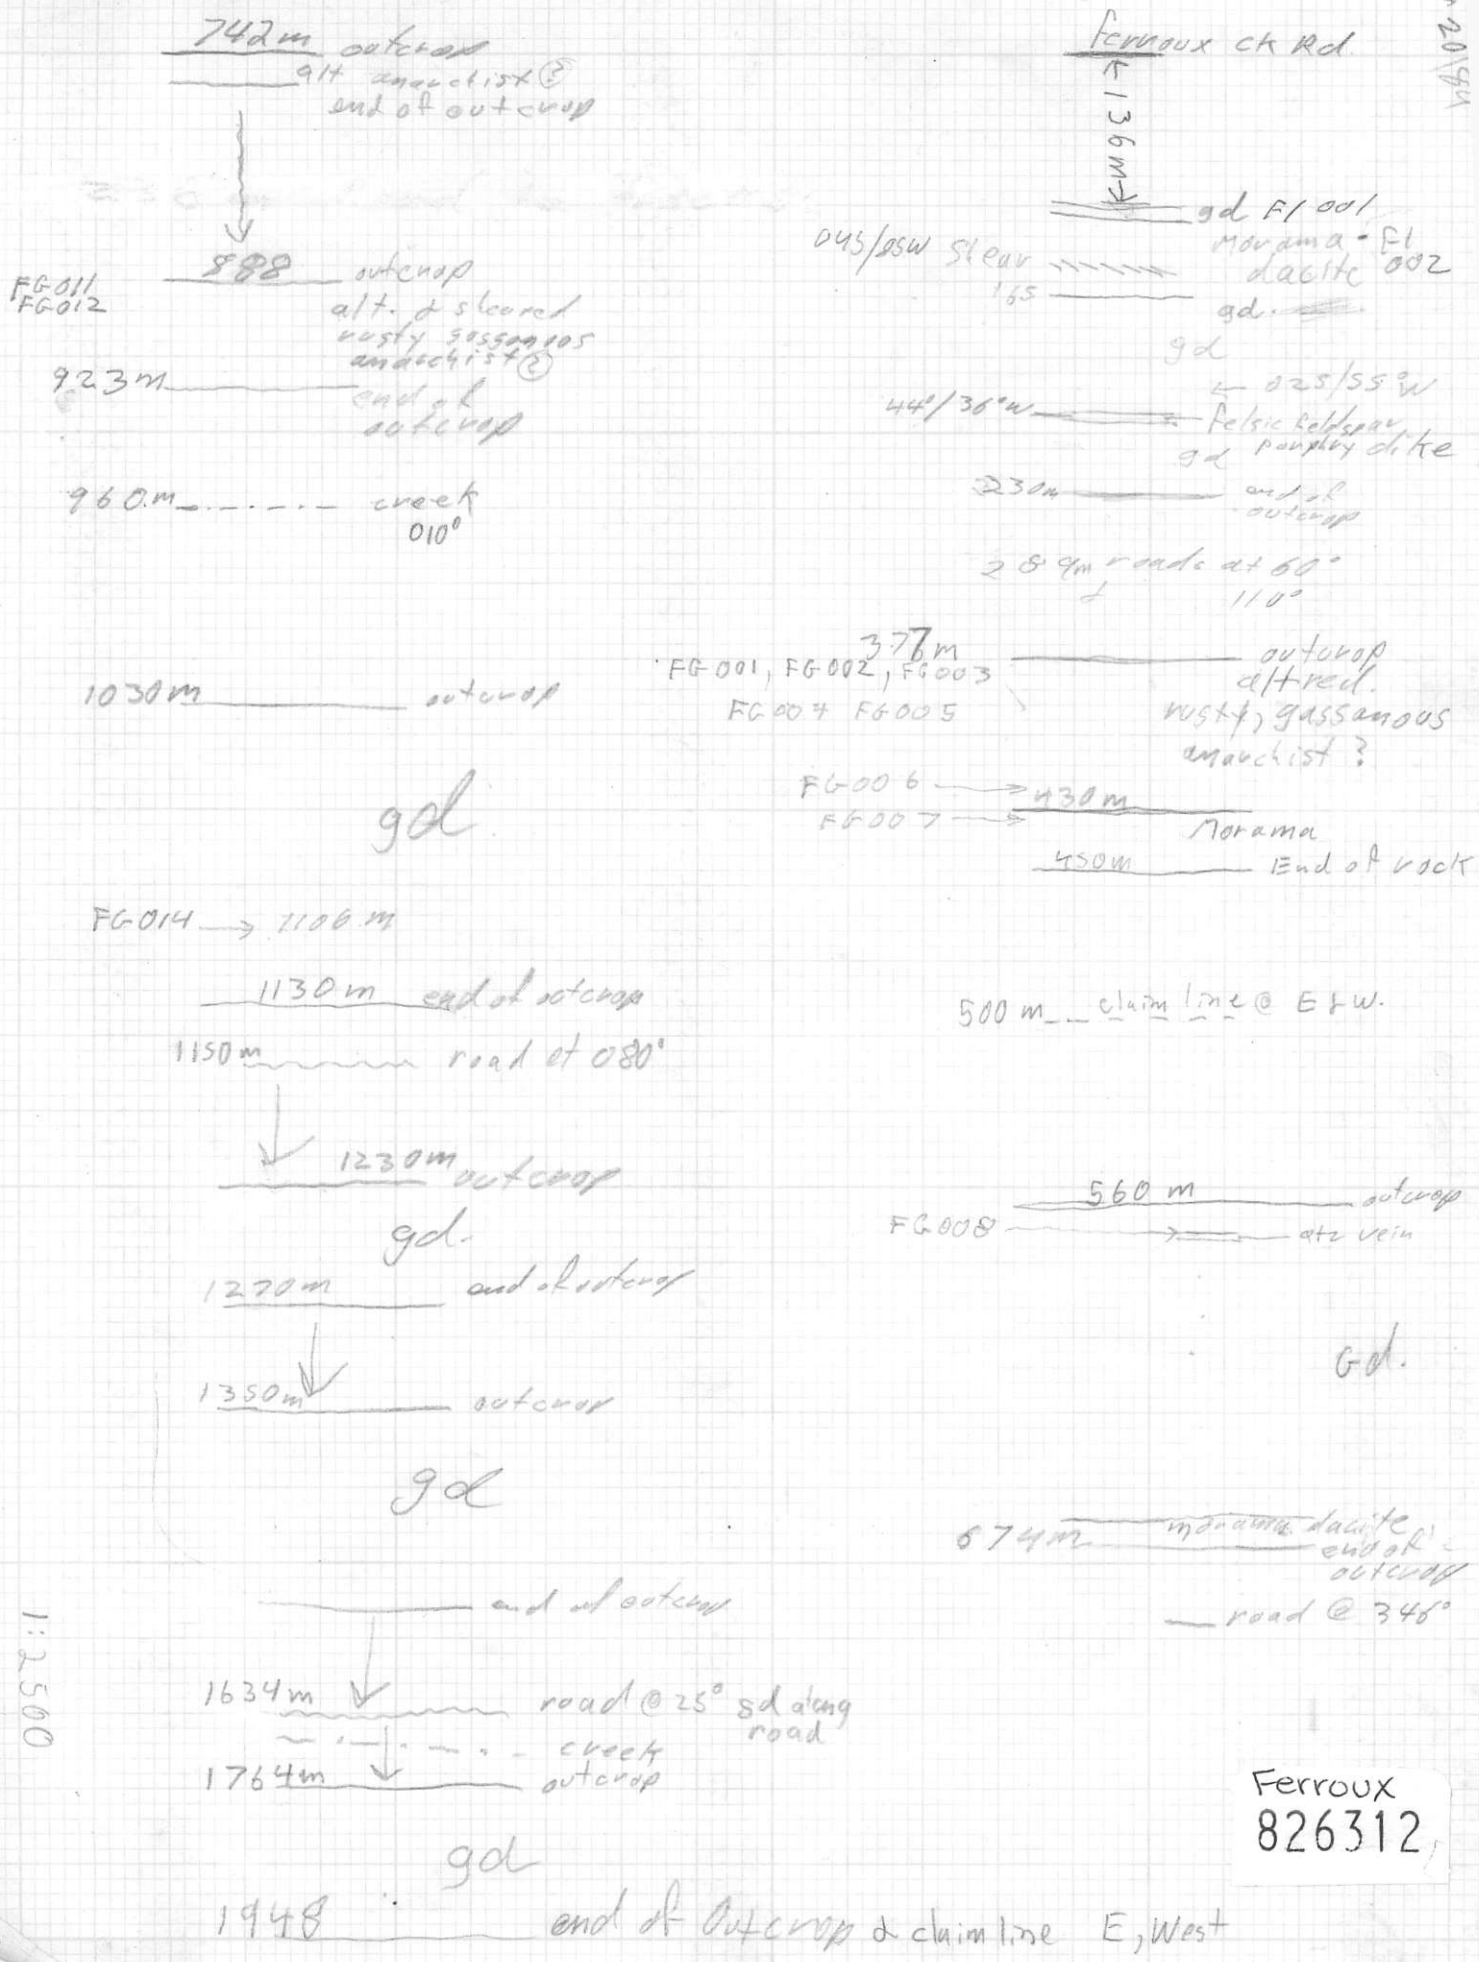 742m outcrop
alt anarchist ?
end of outcrop
888 outcrop
FG011
FG012
alt. & sheared
rusty gossanous
anarchist ?
923m
end of
outcrop
960m creek
010°
1030m outcrop
gd
FG014 → 1106 m
1130m end of outcrop
1150m road at 080°
1230m outcrop
gd.
1270m end of outcrop
1350m outcrop
gd
end of outcrop
1634m road @ 25° gd along
road
creek
1764m outcrop
gd
1948 end of Outcrop & claim line E, West
1:2500
20/84
Ferroux ck Rd.
136m
gd F1 001
Morama - F1
002
dacite
045/85W Shear
165
gd.
gd
← 025/55°W
44°/36°W
felsic feldspar
porphry dike
gd
230m end of
outcrop
289m roads at 60°
& 110°
376m outcrop
FG001, FG002, FG003
altred.
FG004 FG005
rusty, gassanous
anarchist ?
FG006 → 430m
FG007 →
Morama
450m End of rock
500 m claim line @ E & W.
560 m outcrop
FG008 → qtz vein
Gd.
morama dacite
674m end of
outcrop
road @ 346°
Ferroux
826312